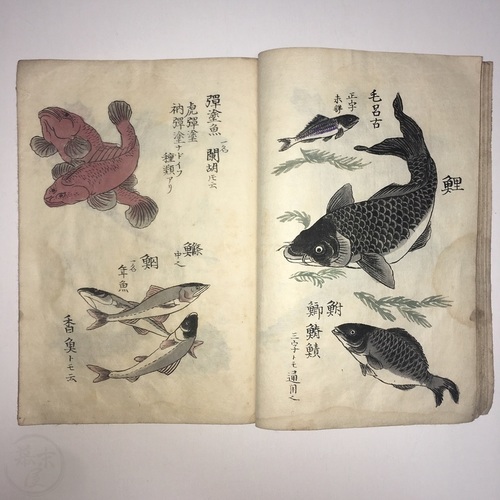 鯉
毛呂古
正字
未詳
鮒
鯽 鰿 鱝
三字トモ通用之
彈塗魚
一名
闌胡トモ云
虎彈塗
衲彈塗ナドイフ
種類アリ
鰷
中之
鮎
一名
年魚
香魚トモ云